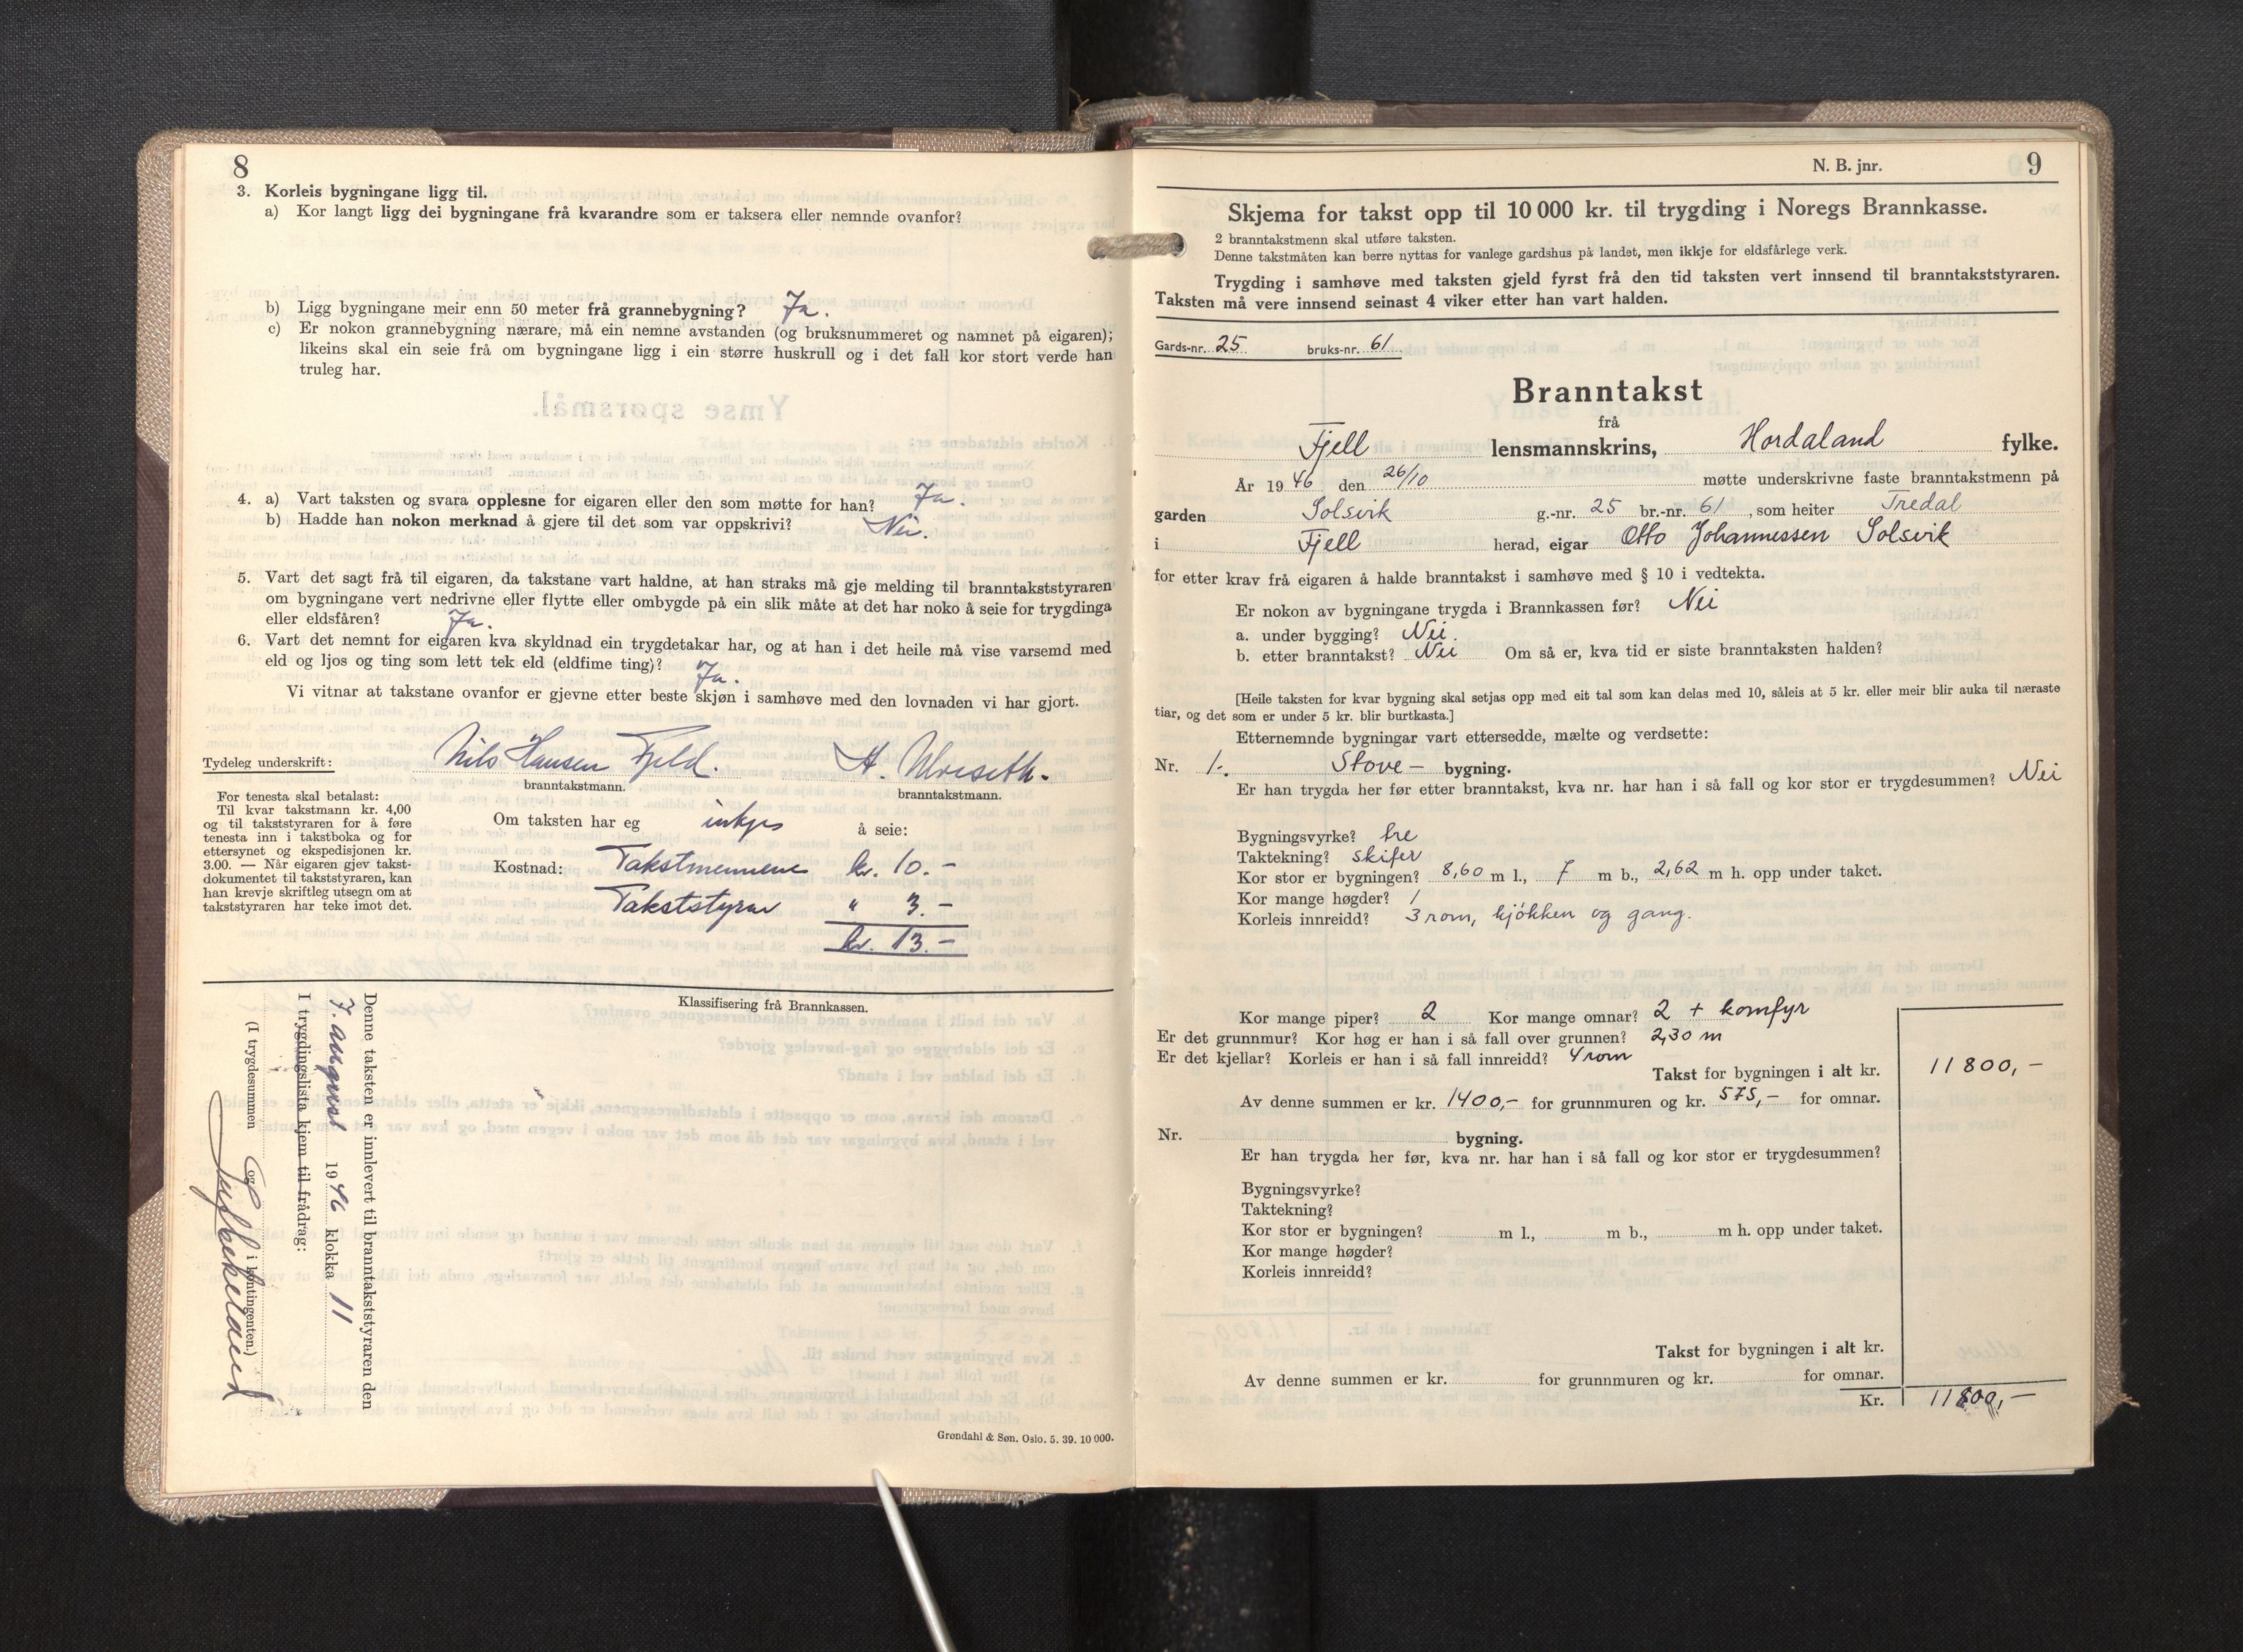 8
3. Korleis bygningane ligg til.
a) Kor langt ligg dei bygningane frå kvarandre som er taksera eller nemnde ovanfor?
b) Ligg bygningane meir enn 50 meter frå grannebygning? Ja.
c) Er nokon grannebygning nærare, må ein nemne avstanden (og bruksnummeret og namnet på eigaren);
likeins skal ein seie frå om bygningane ligg i ein større huskrull og i det fall kor stort verde han
truleg har.
4. a) Vart taksten og svara opplesne for eigaren eller den som møtte for han? Ja.
b) Hadde han nokon merknad å gjere til det som var oppskrivi? Nei.
5. Vart det sagt frå til eigaren, da takstane vart haldne, at han straks må gje melding til branntakststyraren
om bygningane vert nedrivne eller flytte eller ombygde på ein slik måte at det har noko å seie for trygdinga
eller eldsfåren? Ja.
6. Vart det nemnt for eigaren kva skyldnad ein trygdetakar har, og at han i det heile må vise varsemd med
eld og ljos og ting som lett tek eld (eldfime ting)? Ja.
Vi vitnar at takstane ovanfor er gjevne etter beste skjøn i samhøve med den lovnaden vi har gjort.
Tydeleg underskrift: Nils Hansen Fjeld. H. Ulveseth.
branntakstmann. branntakstmann.
For tenesta skal betalast:
Til kvar takstmann kr. 4,00
og til takststyraren for å føre
tenesta inn i takstboka og for
ettersynet og ekspedisjonen kr.
3.00. — Når eigaren gjev takst-
dokumentet til takststyraren, kan
han krevje skriftleg utsegn om at
takststyraren har teke imot det.
Om taksten har eg inkjes å seie:
Kostnad: Takstmennene kr. 10.-
Takststyrar " 3.-
kr. 13.-
Klassifisering frå Brannkassen.
Denne taksten er innlevert til branntakststyraren den
7. august 1946 klokka 11
I trygdingslista kjem til frådrag:
(I trygdesummen og i kontingenten.)
Grøndahl & Søn. Oslo. 5. 39. 10 000.
N. B. jnr. 9
Skjema for takst opp til 10 000 kr. til trygding i Noregs Brannkasse.
2 branntakstmenn skal utføre taksten.
Denne takstmåten kan berre nyttas for vanlege gardshus på landet, men ikkje for eldsfårlege verk.
Trygding i samhøve med taksten gjeld fyrst frå den tid taksten vert innsend til branntakststyraren.
Taksten må vere innsend seinast 4 viker etter han vart halden.
Gards-nr. 25 bruks-nr. 61
Branntakst
frå
Fjell lensmannskrins, Hordaland fylke.
År 1946 den 26/10 møtte underskrivne faste branntakstmenn på
garden Solsvik g.-nr. 25 br.-nr. 61, som heiter Tredal
i Fjell herad, eigar Otto Johannessen Solsvik
for etter krav frå eigaren å halde branntakst i samhøve med § 10 i vedtekta.
Er nokon av bygningane trygda i Brannkassen før? Nei
a. under bygging? Nei.
b. etter branntakst? Nei Om så er, kva tid er siste branntaksten halden?
[Heile taksten for kvar bygning skal setjas opp med eit tal som kan delas med 10, såleis at 5 kr. eller meir blir auka til næraste
tiar, og det som er under 5 kr. blir burtkasta.]
Etternemnde bygningar vart ettersedde, mælte og verdsette:
Nr. 1. Stove- bygning.
Er han trygda her før etter branntakst, kva nr. har han i så fall og kor stor er trygdesummen? Nei
Bygningsvyrke? tre
Taktekning? skifer
Kor stor er bygningen? 8,60 m l., 7 m b., 2,62 m h. opp under taket.
Kor mange høgder? 1
Korleis innreidd? 3 rom, kjökken og gang.
Kor mange piper? 2 Kor mange omnar? 2 + komfyr
Er det grunnmur? Kor høg er han i så fall over grunnen? 2,30 m
Er det kjellar? Korleis er han i så fall innreidd? 4 rom
Takst for bygningen i alt kr. 11800,-
Av denne summen er kr. 1400,- for grunnmuren og kr. 575,- for omnar.
Nr. bygning.
Er han trygda her før, kva nr. har han i så fall og kor stor er trygdesummen?
Bygningsvyrke?
Taktekning?
Kor stor er bygningen? m l., m b., m h. opp under taket.
Kor mange høgder?
Korleis innreidd?
Takst for bygningen i alt kr.
Av denne summen er kr. for grunnmuren og kr. for omnar.
Kr. 11800,-